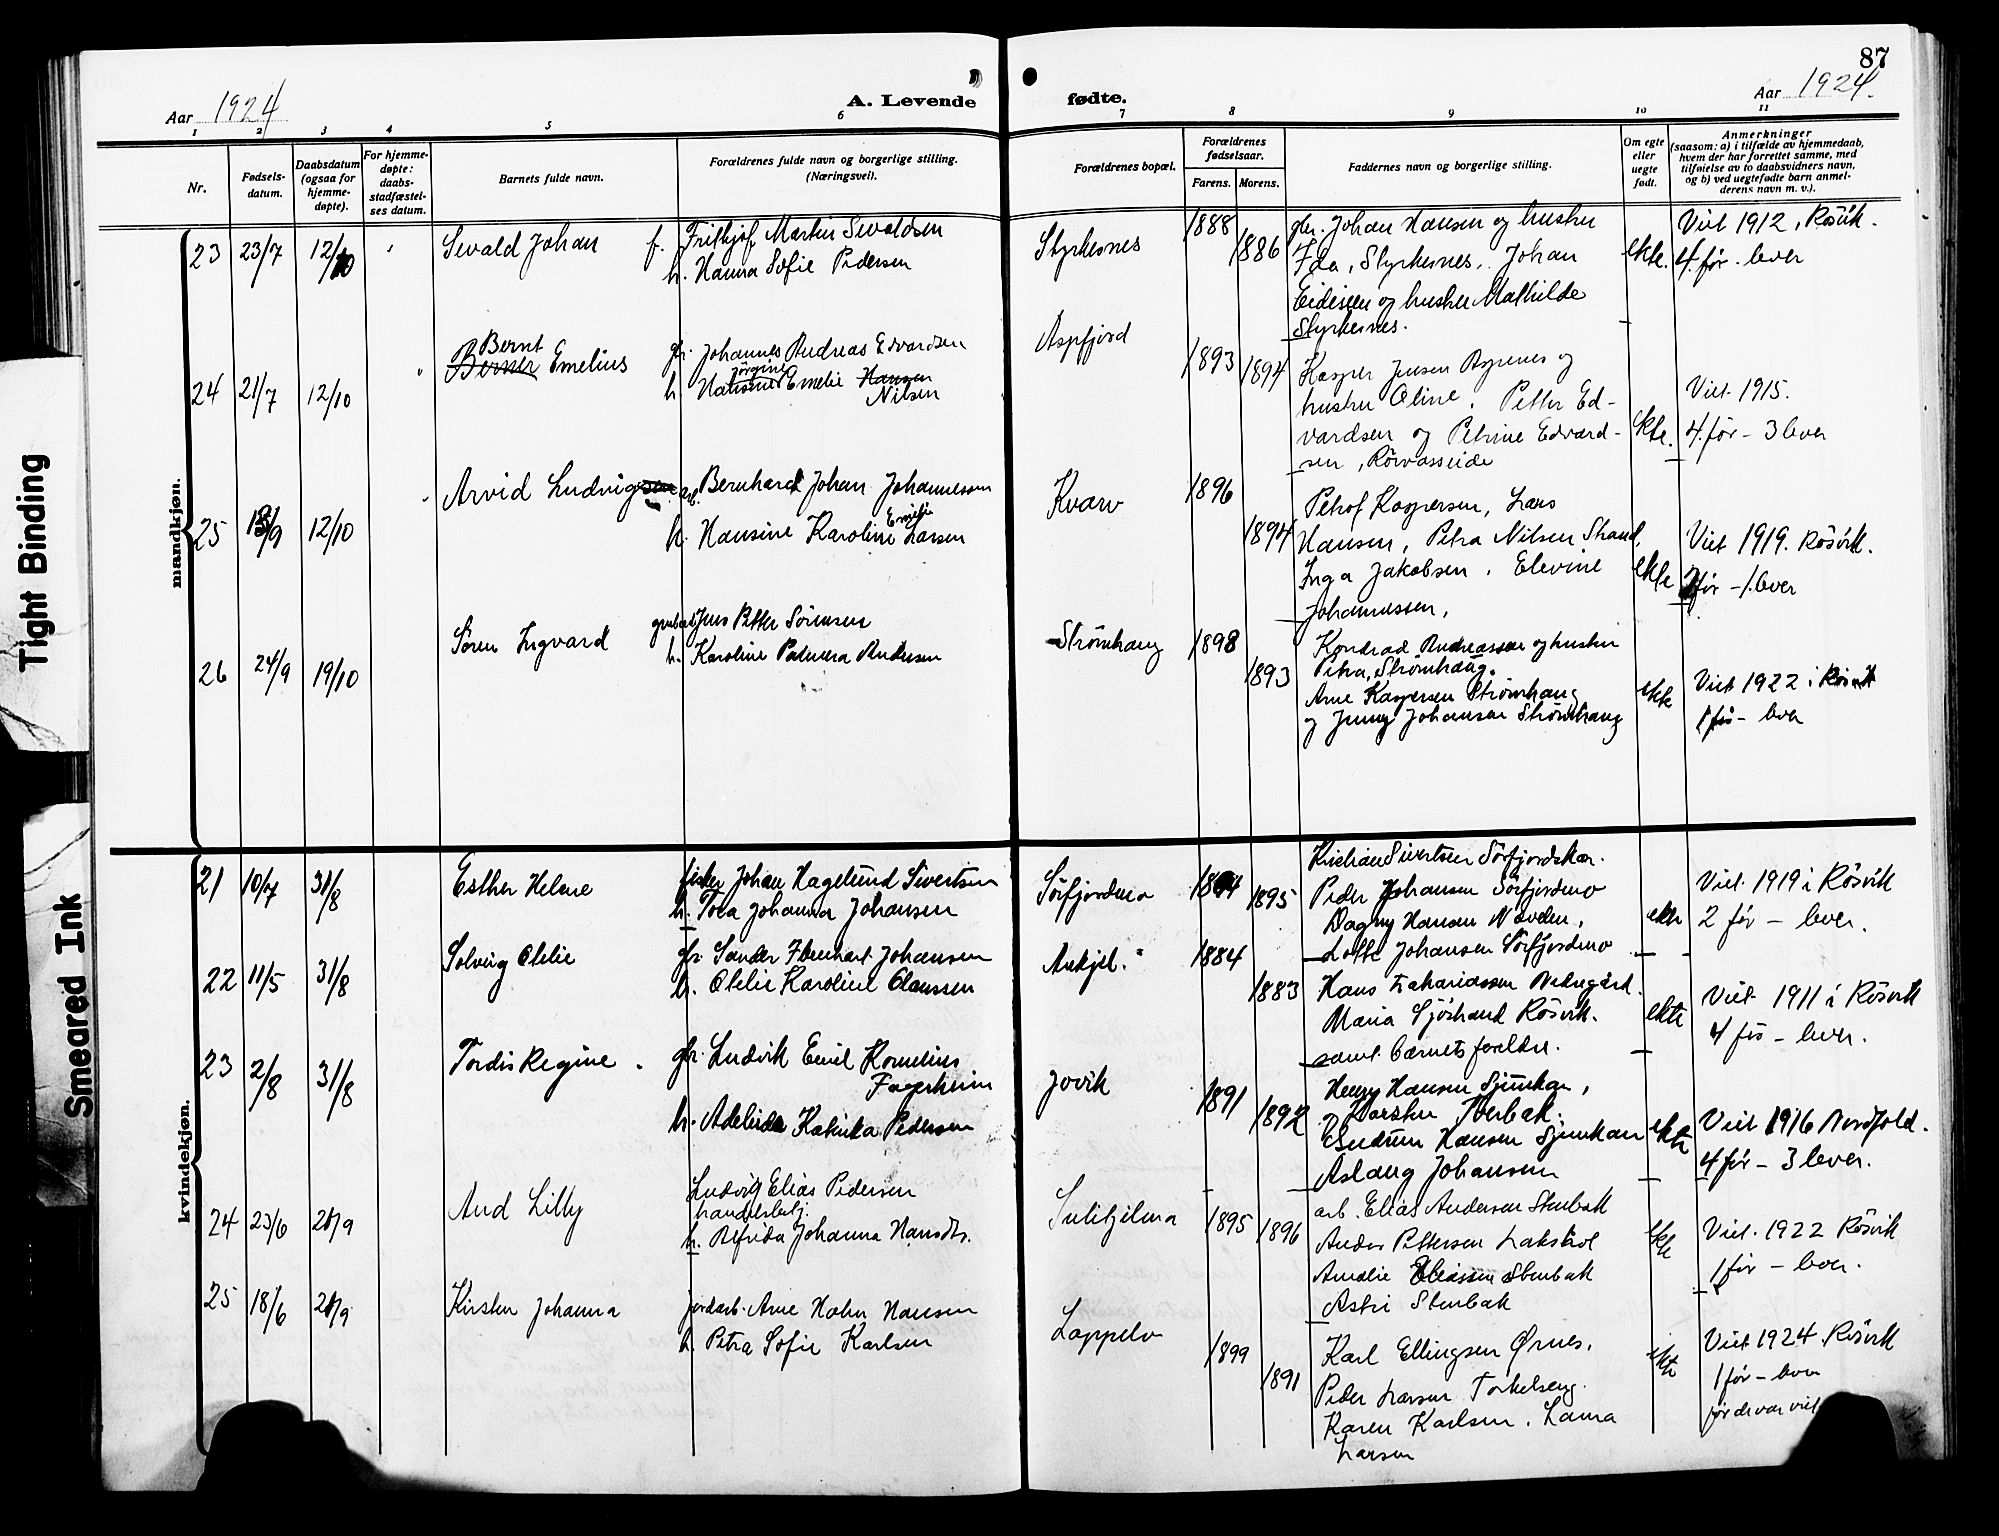 87
Aar 1924
A. Levende
fødte.
Aar 1924.
1 2 3 4 5 6 7 8 9 10 11
Nr.
Fødsels-
datum.
Daabsdatum
(ogsaa for
hjemme-
døpte).
For hjemme-
døpte:
daabs-
stadfæstel-
ses datum.
Barnets fulde navn.
Forældrenes fulde navn og borgerlige stilling.
(Næringsvei).
Forældrenes bopæl.
Forældrenes
fødselsaar.
Farens. Morens.
Faddernes navn og borgerlige stilling.
Om egte
eller
uegte
født.
Anmerkninger
(saasom: a) i tilfælde av hjemmedaab,
hvem der har forrettet samme, med
tilføielse av to daabsvidners navn,
og b) ved uegtefødte barn anmel-
derens navn m. v.).
mandkjøn.
23 23/7 12/10 Sevald Johan
f. Fritkjof Martin Sevaldsen
h. Hanna Sofie Pedersen
Styrkesnes 1888 1886
gbr. Johan Hansen og hustru
Ida, Styrkesnes, Johan
Eidissen og hustru Mathilde
Styrkesnes.
ekte.
Viet 1912, Røsvik.
4 før. lever
24 21/7 12/10
Bernt
Berner Emelius
gbr. Johannes Andreas Edvardsen
Jørgine
h. Hansine Emelie Hansen
Nilsen
Aspfjord 1893 1894
Kasper Jensen Aspenes og
hustru Oline. Petter Ed-
vardsen og Petrine Edvard-
sen, Rørvasseide
ekte.
Viet 1915.
4 før - 3 lever
25 13/9 12/10 Arvid Ludvigsen
arb. Bernhard Johan Johannessen
Emelie
h. Hansine Karoline Larsen
Kvarv 1896 1894
Petrof Kaspersen, Lars
Hansen, Petra Nilsen Strand,
Inga Jakobsen, Elevine
Johannessen,
ekte
Viet 1919. Røsvik.
2 før - 1 lever
26 24/9 19/10 Søren Ingvard
grubearb. Jens Petter Sørensen
h. Karoline Andersen
Strømhaug 1898 1893
Konrad Andreassen og hustru
Petra, Strømhaug.
Arne Kaspersen Strømhaug
og Jenny Johansen Strømhaug
ekte
Viet 1922 i Røsvik
1 før - lever
kvindekjøn.
21 10/7 31/8 Esther Helene
fisker Johan Hagelund Sivertsen
h. Tora Johanna Johansen
Sørfjordmo 1894 1895
Kristian Sivertsen Sørfjordskar.
Peder Johansen Sørfjordmo
Dagny Hansen Nævden,
Lotte Johansen Sørfjordmo
ekte
Viet 1919 i Røsvik
2 før - lever.
22 11/5 31/8 Solveig Otelie
gbr. Sander Johansen
h. Otelie Karoline Claussen
1884 1883
Hans Zakariassen Nedregård.
Maria Sjøstrand Røsvik.
samt barnets foreldre.
ekte
Viet 1911 i Røsvik
4 før - lever.
23 2/8 31/8 Tordis Regine
gbr. Ludvik Emil Kornelius
Fagerheim
h. Adelinda Katinka Pedersen
Jovik 1891 1892
Henry Hansen Sjunkan,
og Torsten Tverbak.
Gudrun Hansen Sjunkan
Aslaug Johansen
ekte
Viet 1916 Nordfold.
4 før - 3 lever.
24 23/6 21/9 Aud Lilly
Ludvig Elias Pedersen
handelsbetj.
h. Alfrida Johanna Hansdtr.
Sulitjelma 1895 1896
arb. Elias Andersen Stenbak
Anders Pettersen Lakshol
Amalie Eliassen Stenbak
Astri Stenbak
ekte
Viet. 1922 Røsvik
1 før - lever.
25 18/6 21/9 Kirsten Johanna
jordarb. Arne Hansen
h. Petra Sofie Karlsen
Lappelv 1899 1891
Karl Ellingsen Ørnes,
Peder Larsen Torkelseng.
Karen Karlsen, Laura
Larsen
ekte
Viet 1924 Røsvik
1 før - lever
før de var viet
Tight Binding
Smeared Ink